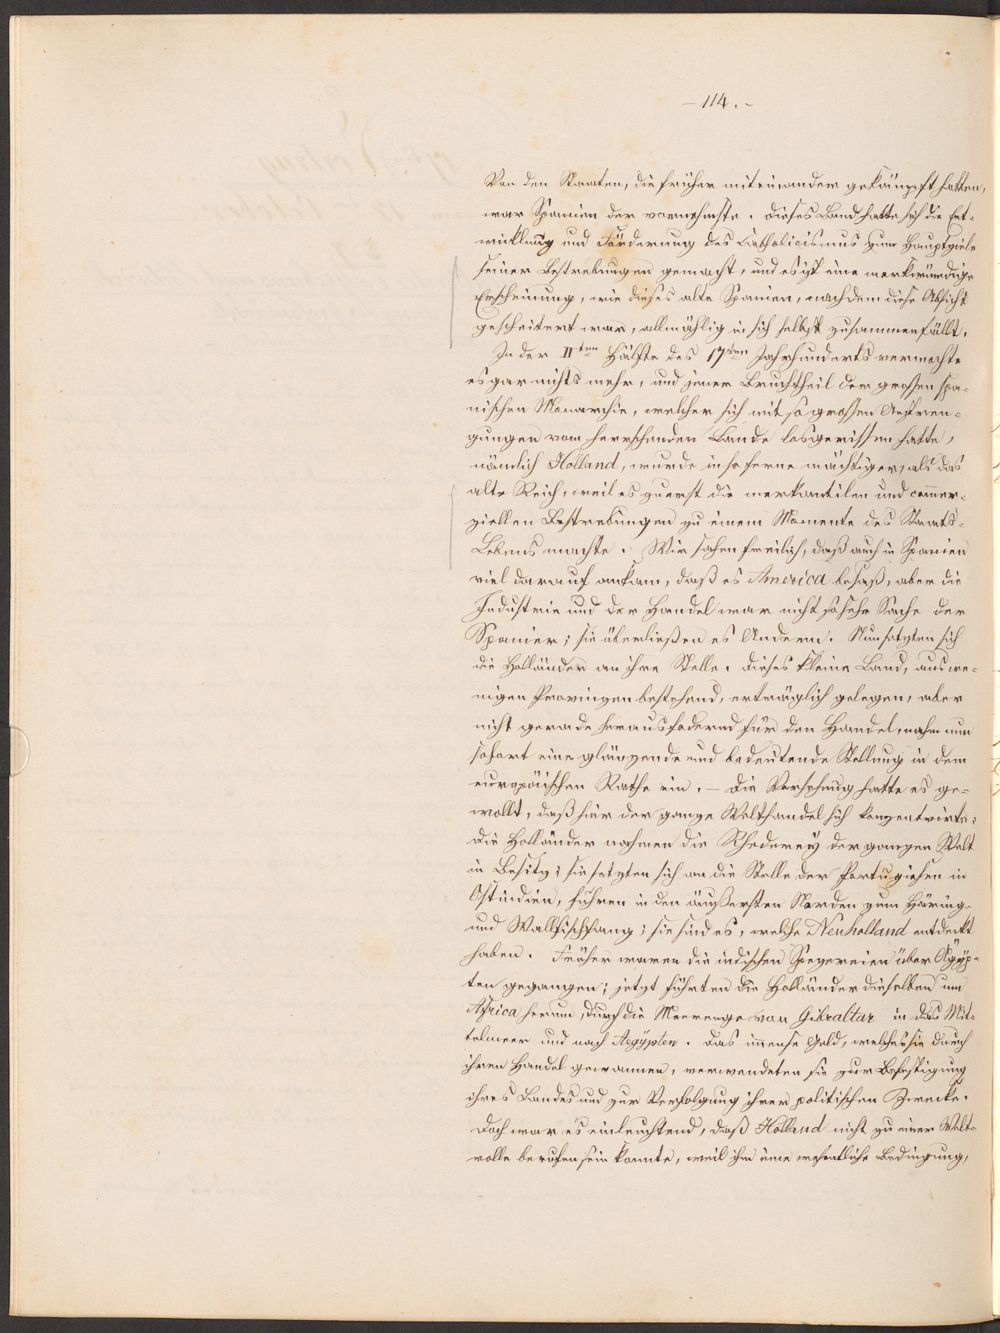 – 114. –
Von den Staaten, die früher miteinander gekämpft hatten,
war Spanien der vornehmste. Dieses Land hatte sich die Ent-
wicklung und Förderung des Katholicismus zum Hauptziele
seiner Bestrebungen gemacht, und es ist eine merkwürdige
Erscheinung, wie dieses alte Spanien, nachdem diese Absicht
gescheitert war, allmählig in sich selbst zusammenfällt.
In der IIten Hälfte des 17ten Jahrhunderts vermochte
es gar nichts mehr, und jener Bruchtheil der großen spa-
nischen Monarchie, welcher sich mit so großen Anstren-
gungen vom herrschenden Lande losgerissen hatte,
nämlich Holland, wurde in soferne mächtiger, als das
alte Reich, weil es zuerst die merkantilen und commer-
ziellen Bestrebungen zu einem Momente des Staats-
Lebens machte. Wir sahen freilich, daß auch in Spanien
viel darauf ankam, daß es America besaß, aber die
Industrie und der Handel war nicht so sehr Sache der
Spanier; sie überließen es Andern. Nun setzten sich
die Holländer an ihre Stelle. Dieses kleine Land, aus we-
nigen Provinzen bestehend, erträglich gelegen, aber
nicht gerade herausfodernd für den Handel, nahm nun
sofort eine glänzende und bedeutende Stellung in dem
europäischen Rathe ein. – Die Vorsehung hatte es ge-
wollt, daß hier der ganze Welthandel sich konzentrirte;
die Holländer nahmen die Rhederey der ganzen Welt
in Besitz; sie setzten sich an die Stelle der Portugiesen in
Ostindien, fuhren in den äußersten Norden zum Häring-
und Wallfischfang; sie sind es, welche Neuholland entdeckt
haben. Früher waren die indischen Spezereien über Ägyp-
ten gegangen; jetzt führten die Holländer dieselben um
Africa herum, durch die Meerenge von Gibraltar in das Mit-
telmeer und nach Aegypten. Das immense Geld, welches sie durch
ihren Handel gewannen, verwendeten sie zur Befestigung
ihres Landes und zur Verfolgung ihrer politischen Zwecke.
Doch war es einleuchtend, daß Holland nicht zu einer Welt-
rolle berufen sein konnte, weil ihm eine wesentliche Bedingung,